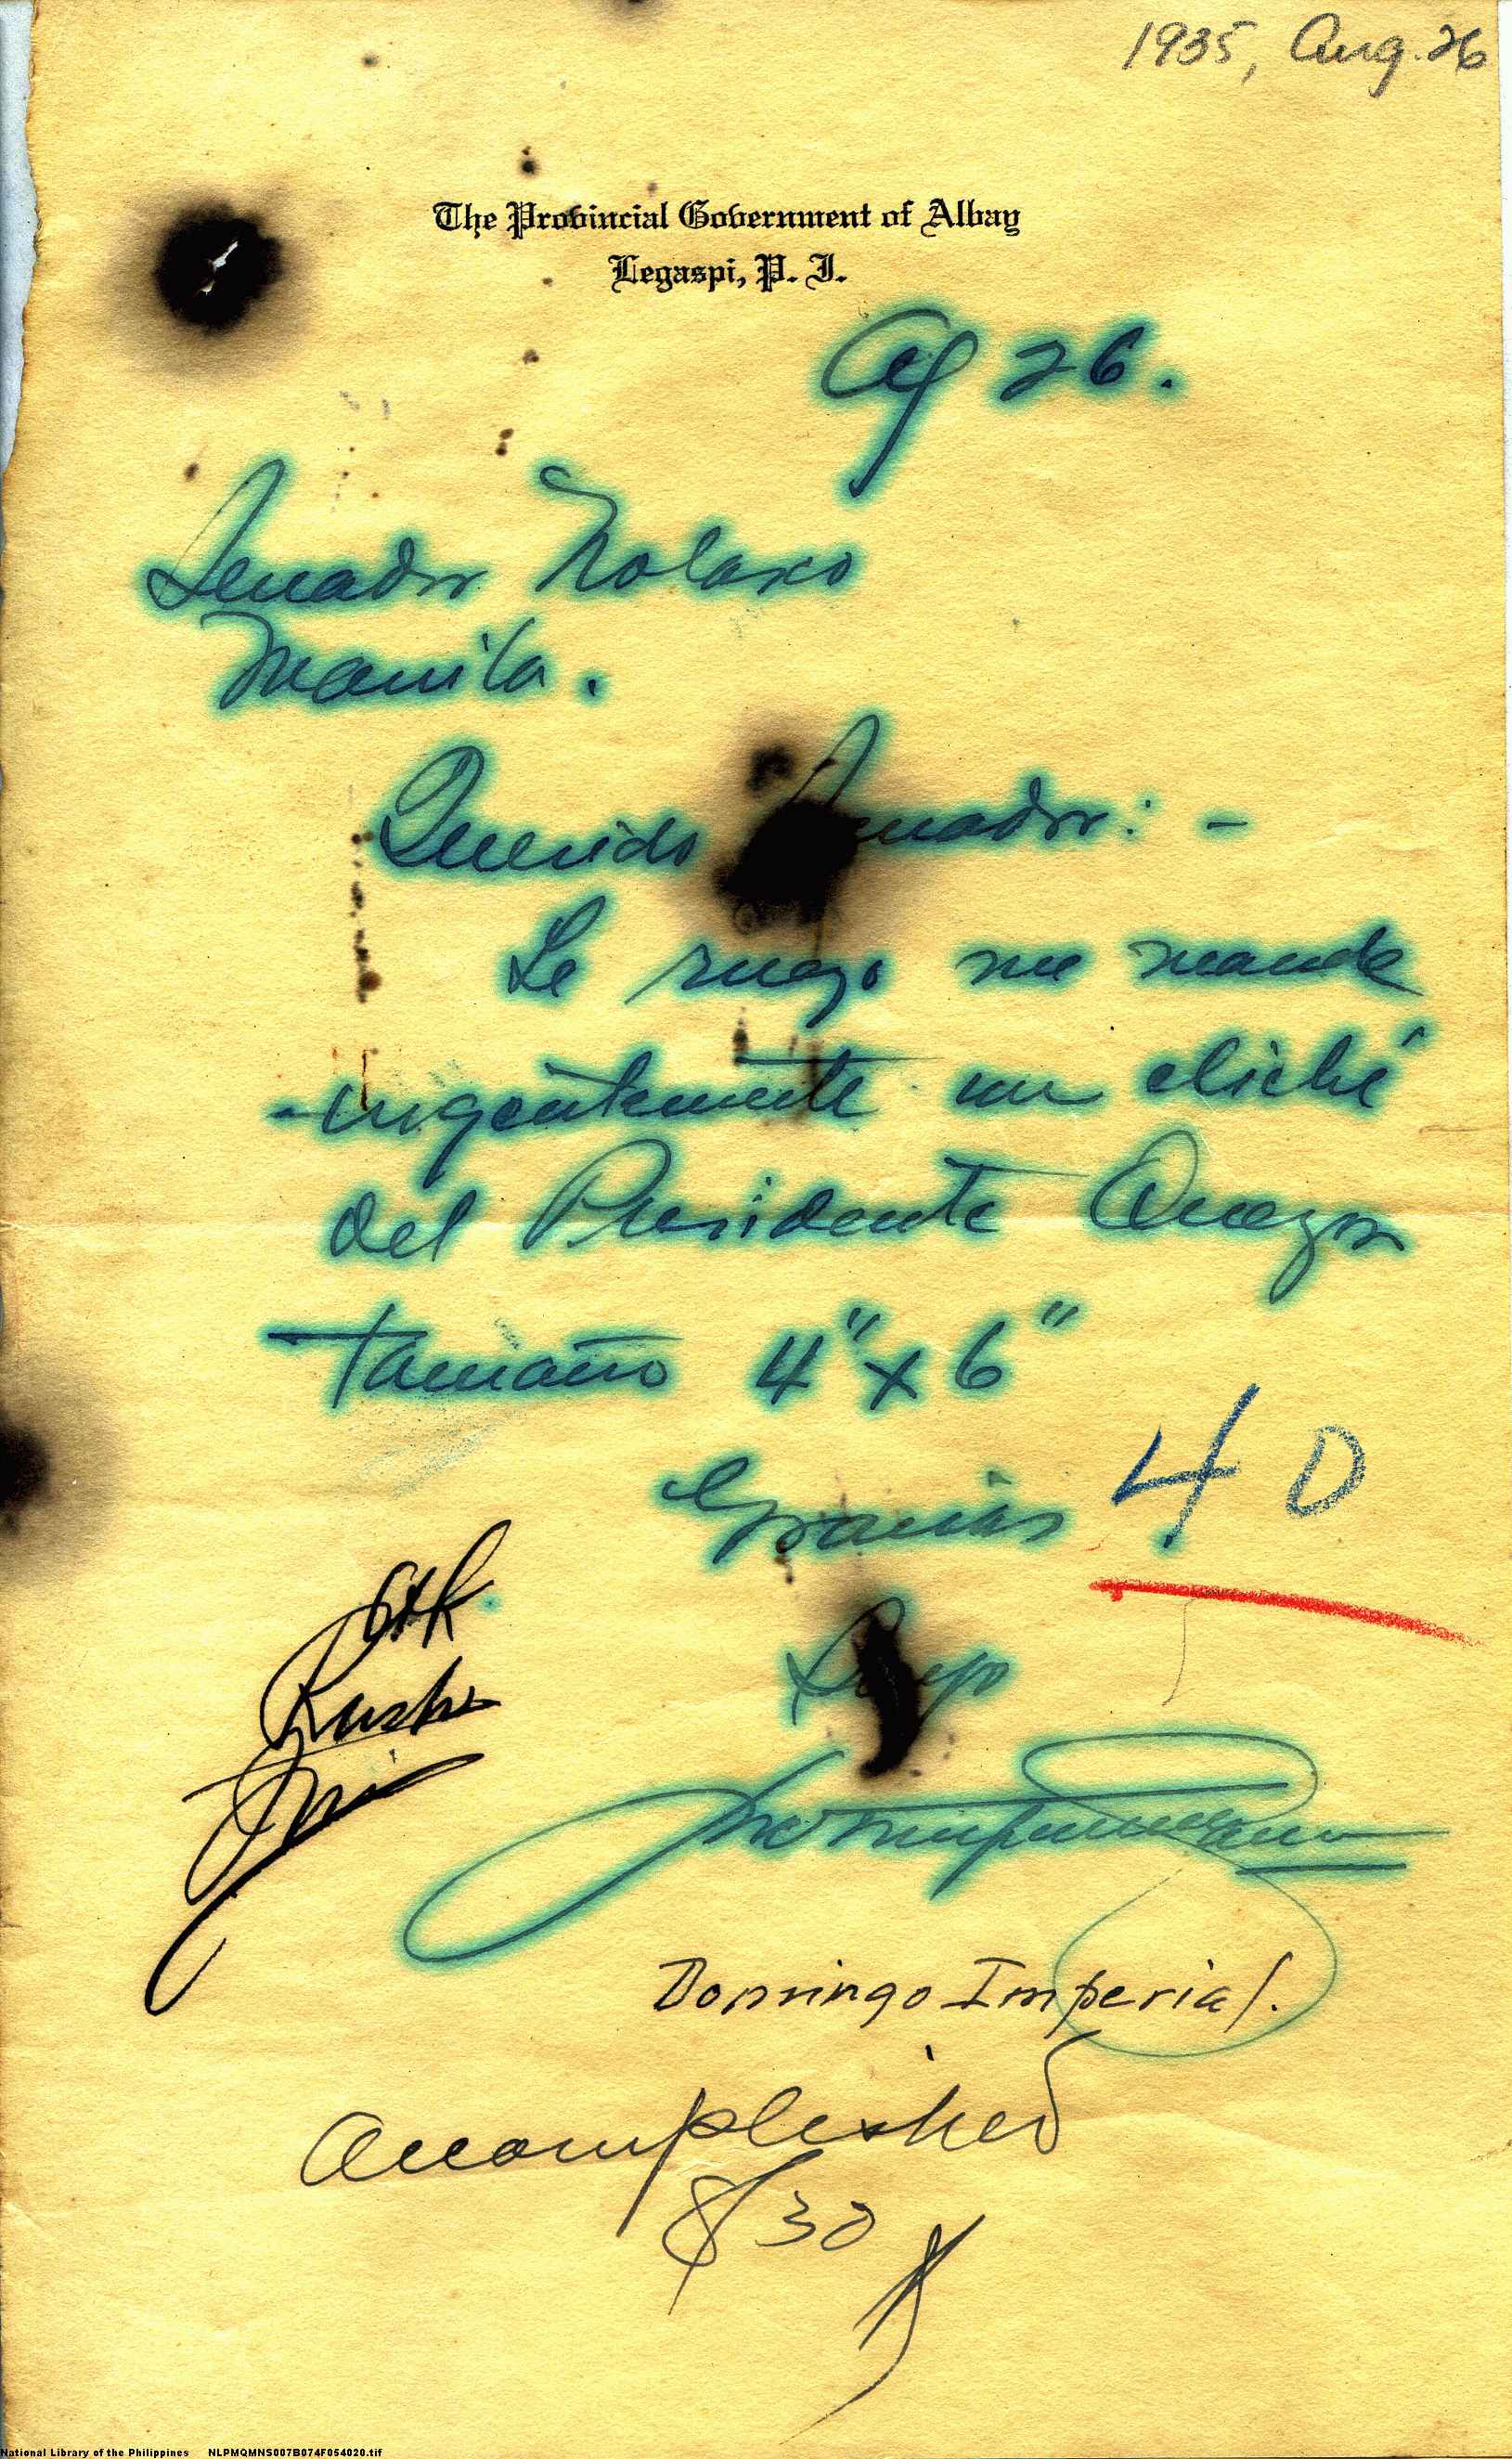 1935, Aug. 26
The Provincial Government of Albay
Legaspi, P. I.
Ag 26.
Senador Nolasco
Manila.
Querido Senador: -
Le ruego me mande
urgentemente un cliché
del Presidente Quezon
tamaño 4" x 6"
Gracias
4 D
Suyo
Rush
Domingo Imperial.
Accomplished
8/30
National Library of the Philippines NLPMQMNS007B074F054020.tif